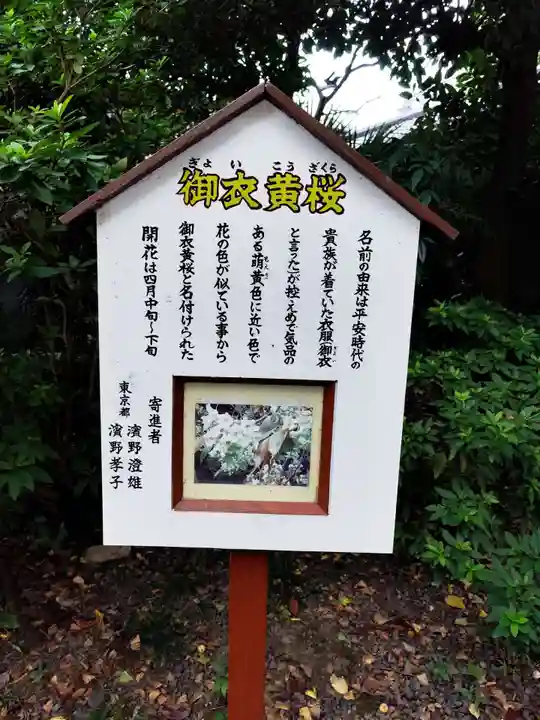 ぎょ い こう ざくら
御衣黄桜
名前の由来は平安時代の
貴族が着ていた衣服(御衣
と言った)が控えめで気品の
ある萌黄色に近い色で
花の色が似ている事から
御衣黄桜と名付けられた
開花は四月中旬～下旬
寄進者
東京都 濱野澄雄
濱野孝子